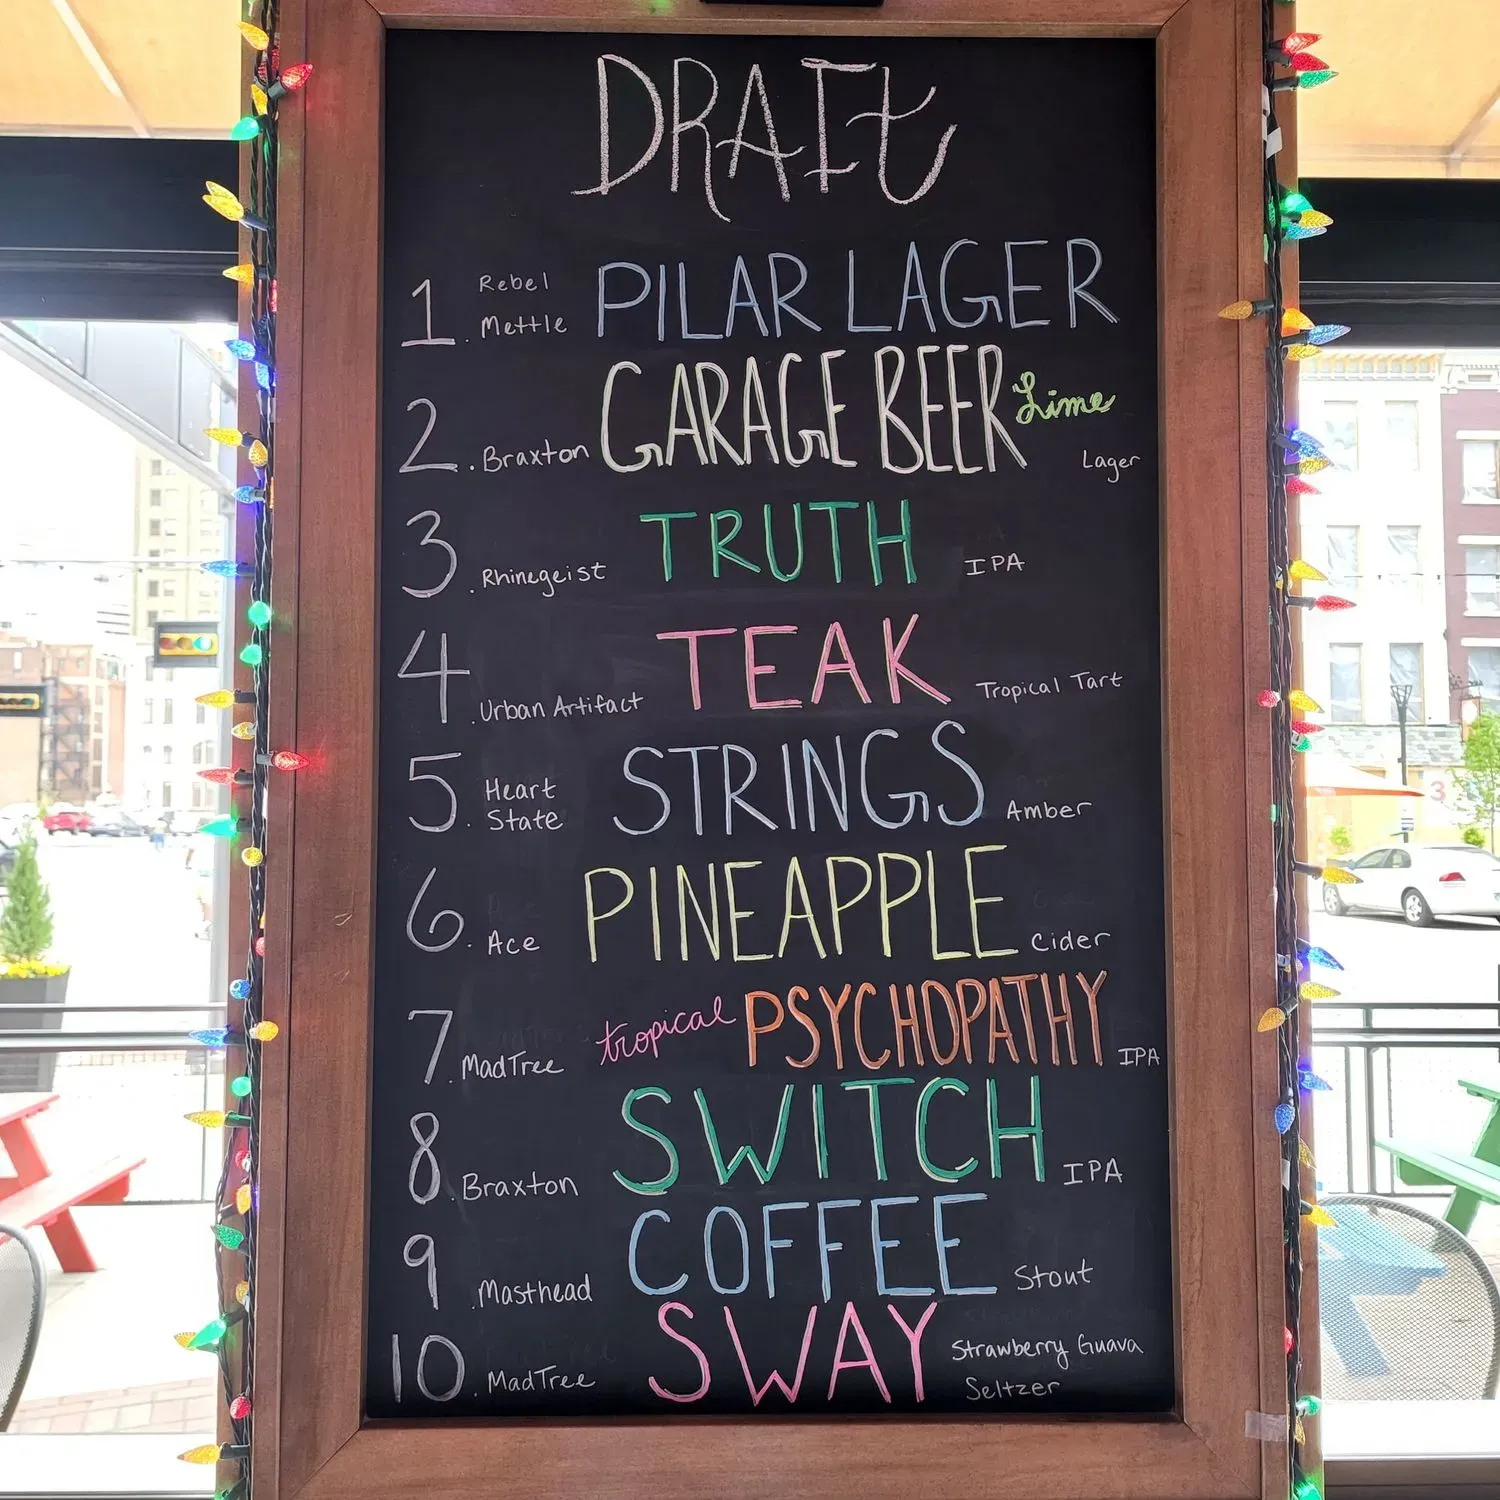 DRAFt
1. Rebel Mettle PILAR LAGER
2. Braxton GARAGE BEER Lime Lager
3. Rhinegeist TRUTH IPA
4. Urban Artifact TEAK Tropical Tart
5. Heart State STRINGS Amber
6. Ace PINEAPPLE Cider
7. MadTree tropical PSYCHOPATHY IPA
8. Braxton SWITCH IPA
9. Masthead COFFEE Stout
10. MadTree SWAY Strawberry Guava Seltzer
3